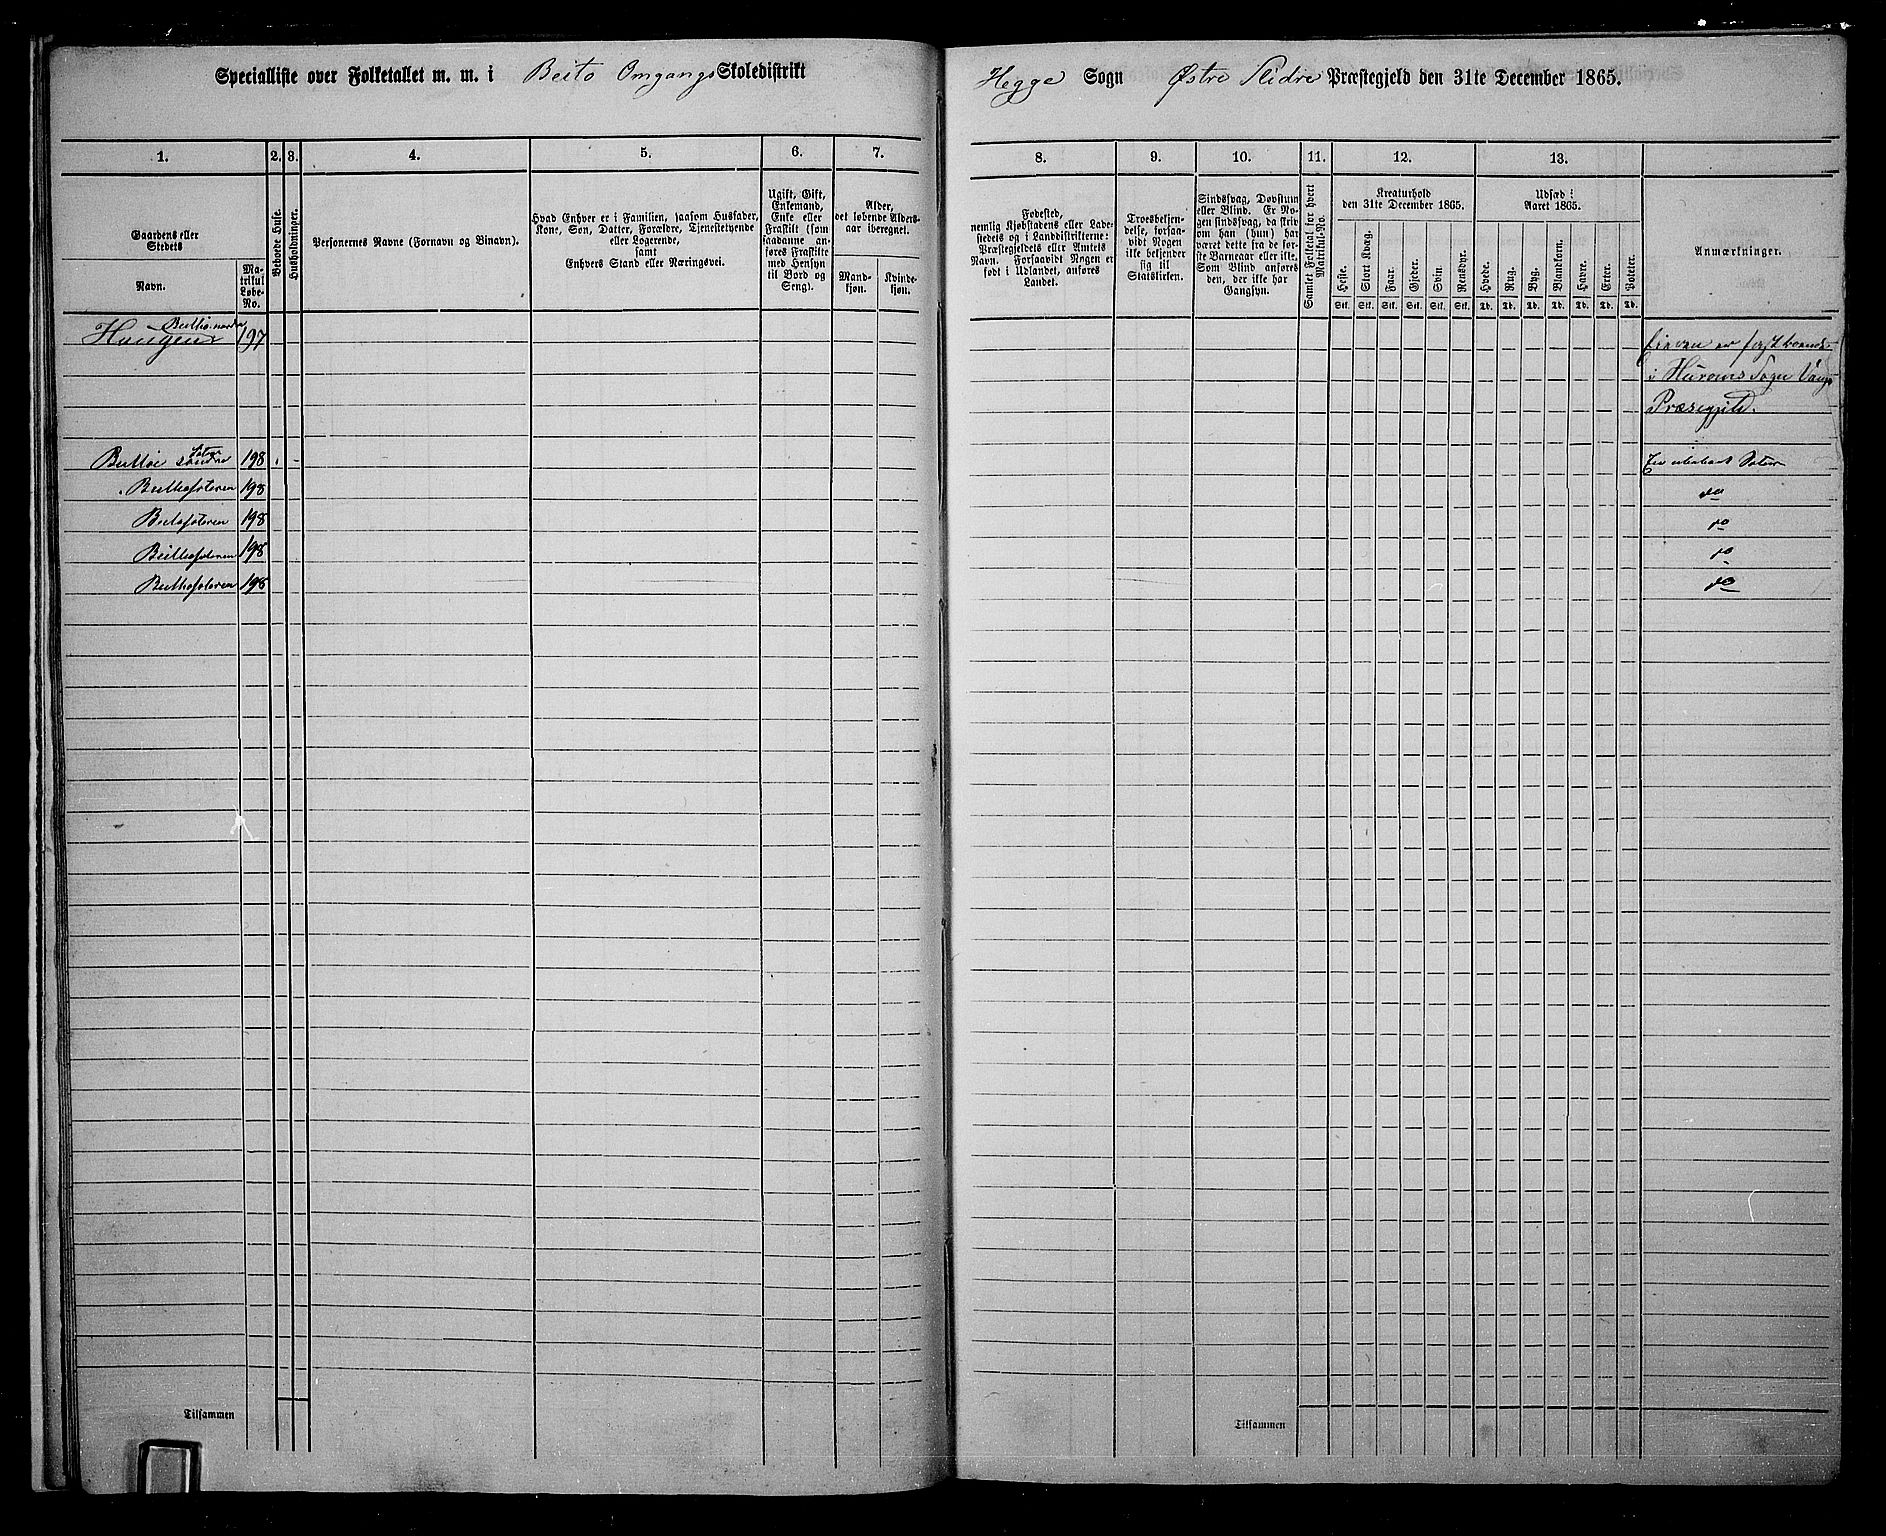 Specialliste over Folketallet m. m. i Beito Omgangs Skoledistrikt
Hegge Sogn Østre Slidre Præstegjeld den 31te December 1865.
1. 2. 3. 4. 5. 6. 7.
Gaardens eller Stedets
Navn.
Matrikul Løbe-No.
Beboede Huse.
Husholdninger.
Personernes Navne (Fornavn og Binavn).
Hvad Enhver er i Familien, saasom Husfader,
Kone, Søn, Datter, Forældre, Tjenestetyende
eller Logerende,
samt
Enhvers Stand eller Næringsvei.
Ugift, Gift,
Enkemand,
Enke eller
Fraskilt (som
saadanne an-
føres Fraskilte
med Hensyn
til Bord og
Seng).
Alder,
det løbende Alders-
aar iberegnet.
Mand-
kjøn.
Kvinde-
kjøn.
8. 9. 10. 11. 12. 13.
Fødested,
nemlig Kjøbstadens eller Lade-
stedets og i Landdistrikterne:
Præstegjeldets eller Amtets
Navn. Forsaavidt Nogen er
født i Udlandet, anføres
Landet.
Troesbekjen-
delse, forsaa-
vidt Nogen
ikke bekjender
sig til
Statskirken.
Sindssvag, Døvstum
eller Blind. Er No-
gen sindssvag, da skriv
om han (hun) har
været dette fra de før-
ste Barneaar eller ikke.
Som Blind anføres
den, der ikke har
Gangsyn.
Samlet Folketal for hvert
Matrikul-No.
Kreaturhold
den 31te December 1865.
Heste. Stort Kvæg. Faar. Geder. Svin. Rensdyr.
Stk. Stk. Stk. Stk. Stk. Stk.
Udsæd i
Aaret 1865.
Hvede. Rug. Byg. Blandkorn. Havre. Erter. Poteter.
Td. Td. Td. Td. Td. Td. Td.
Anmærkninger.
Beitto nordre
Haugen 197
Eieren er fast boende
i Hurums Sogn Vangs
Præsegjeld.
Beittoe søndre 198 En ubeboet Sæter
Beittosæteren 198 do
Beitosæteren 198 do
Beittosæteren 198 do
Beittosæteren 198 do
Tilsammen
Tilsammen